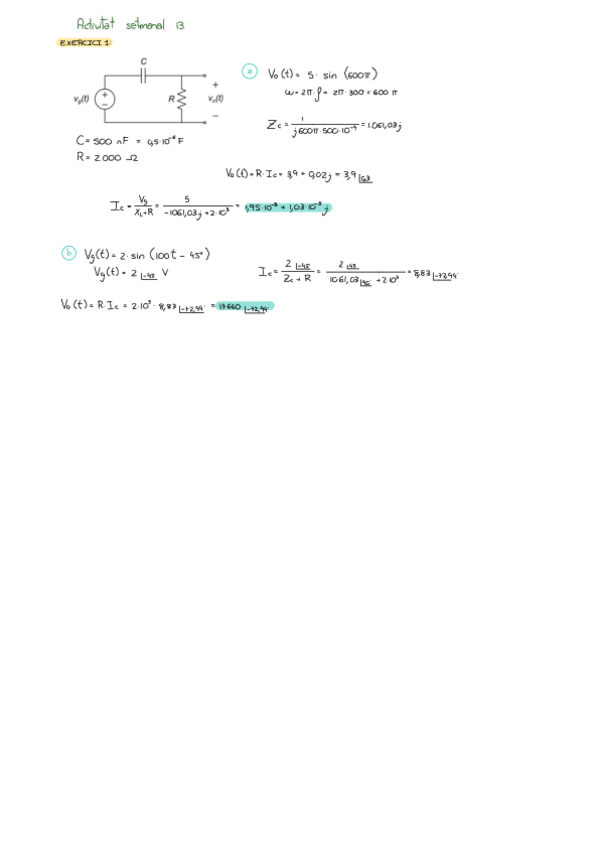 Activitat setmanal 13
EXERCICI 1:
C
+
vg(t)
R
vo(t)
-
C = 500 nF = 0,5·10⁻⁶ F
R = 2.000 Ω
a Vo(t) = 5 · sin (600π)
ω = 2π · f = 2π · 300 = 600 π
Zc = 1 / j600π·500·10⁻⁹ = 1.061,03j
Vo(t) = R · Ic = 3,9 + 0,02j = 3,9
Ic = Vg / XL+R = 5 / -1061,03j+2·10³ = 1,95·10⁻³ + 1,03·10⁻³ j
b Vg(t) = 2 · sin (100t - 45°)
Vg(t) = 2 |-45 V
Ic = 2 |-45 / Zc + R = 2 |-45 / 1061,03 + 2·10³ = 8,83 |-72,94°
Vo(t) = R · Ic = 2·10³ · 8,83 |-72,94° = 17660 |-72,94°